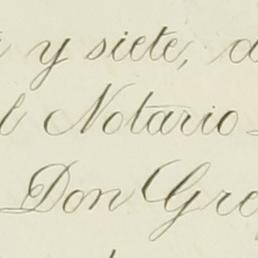 y siete,
Notario
Don Gre